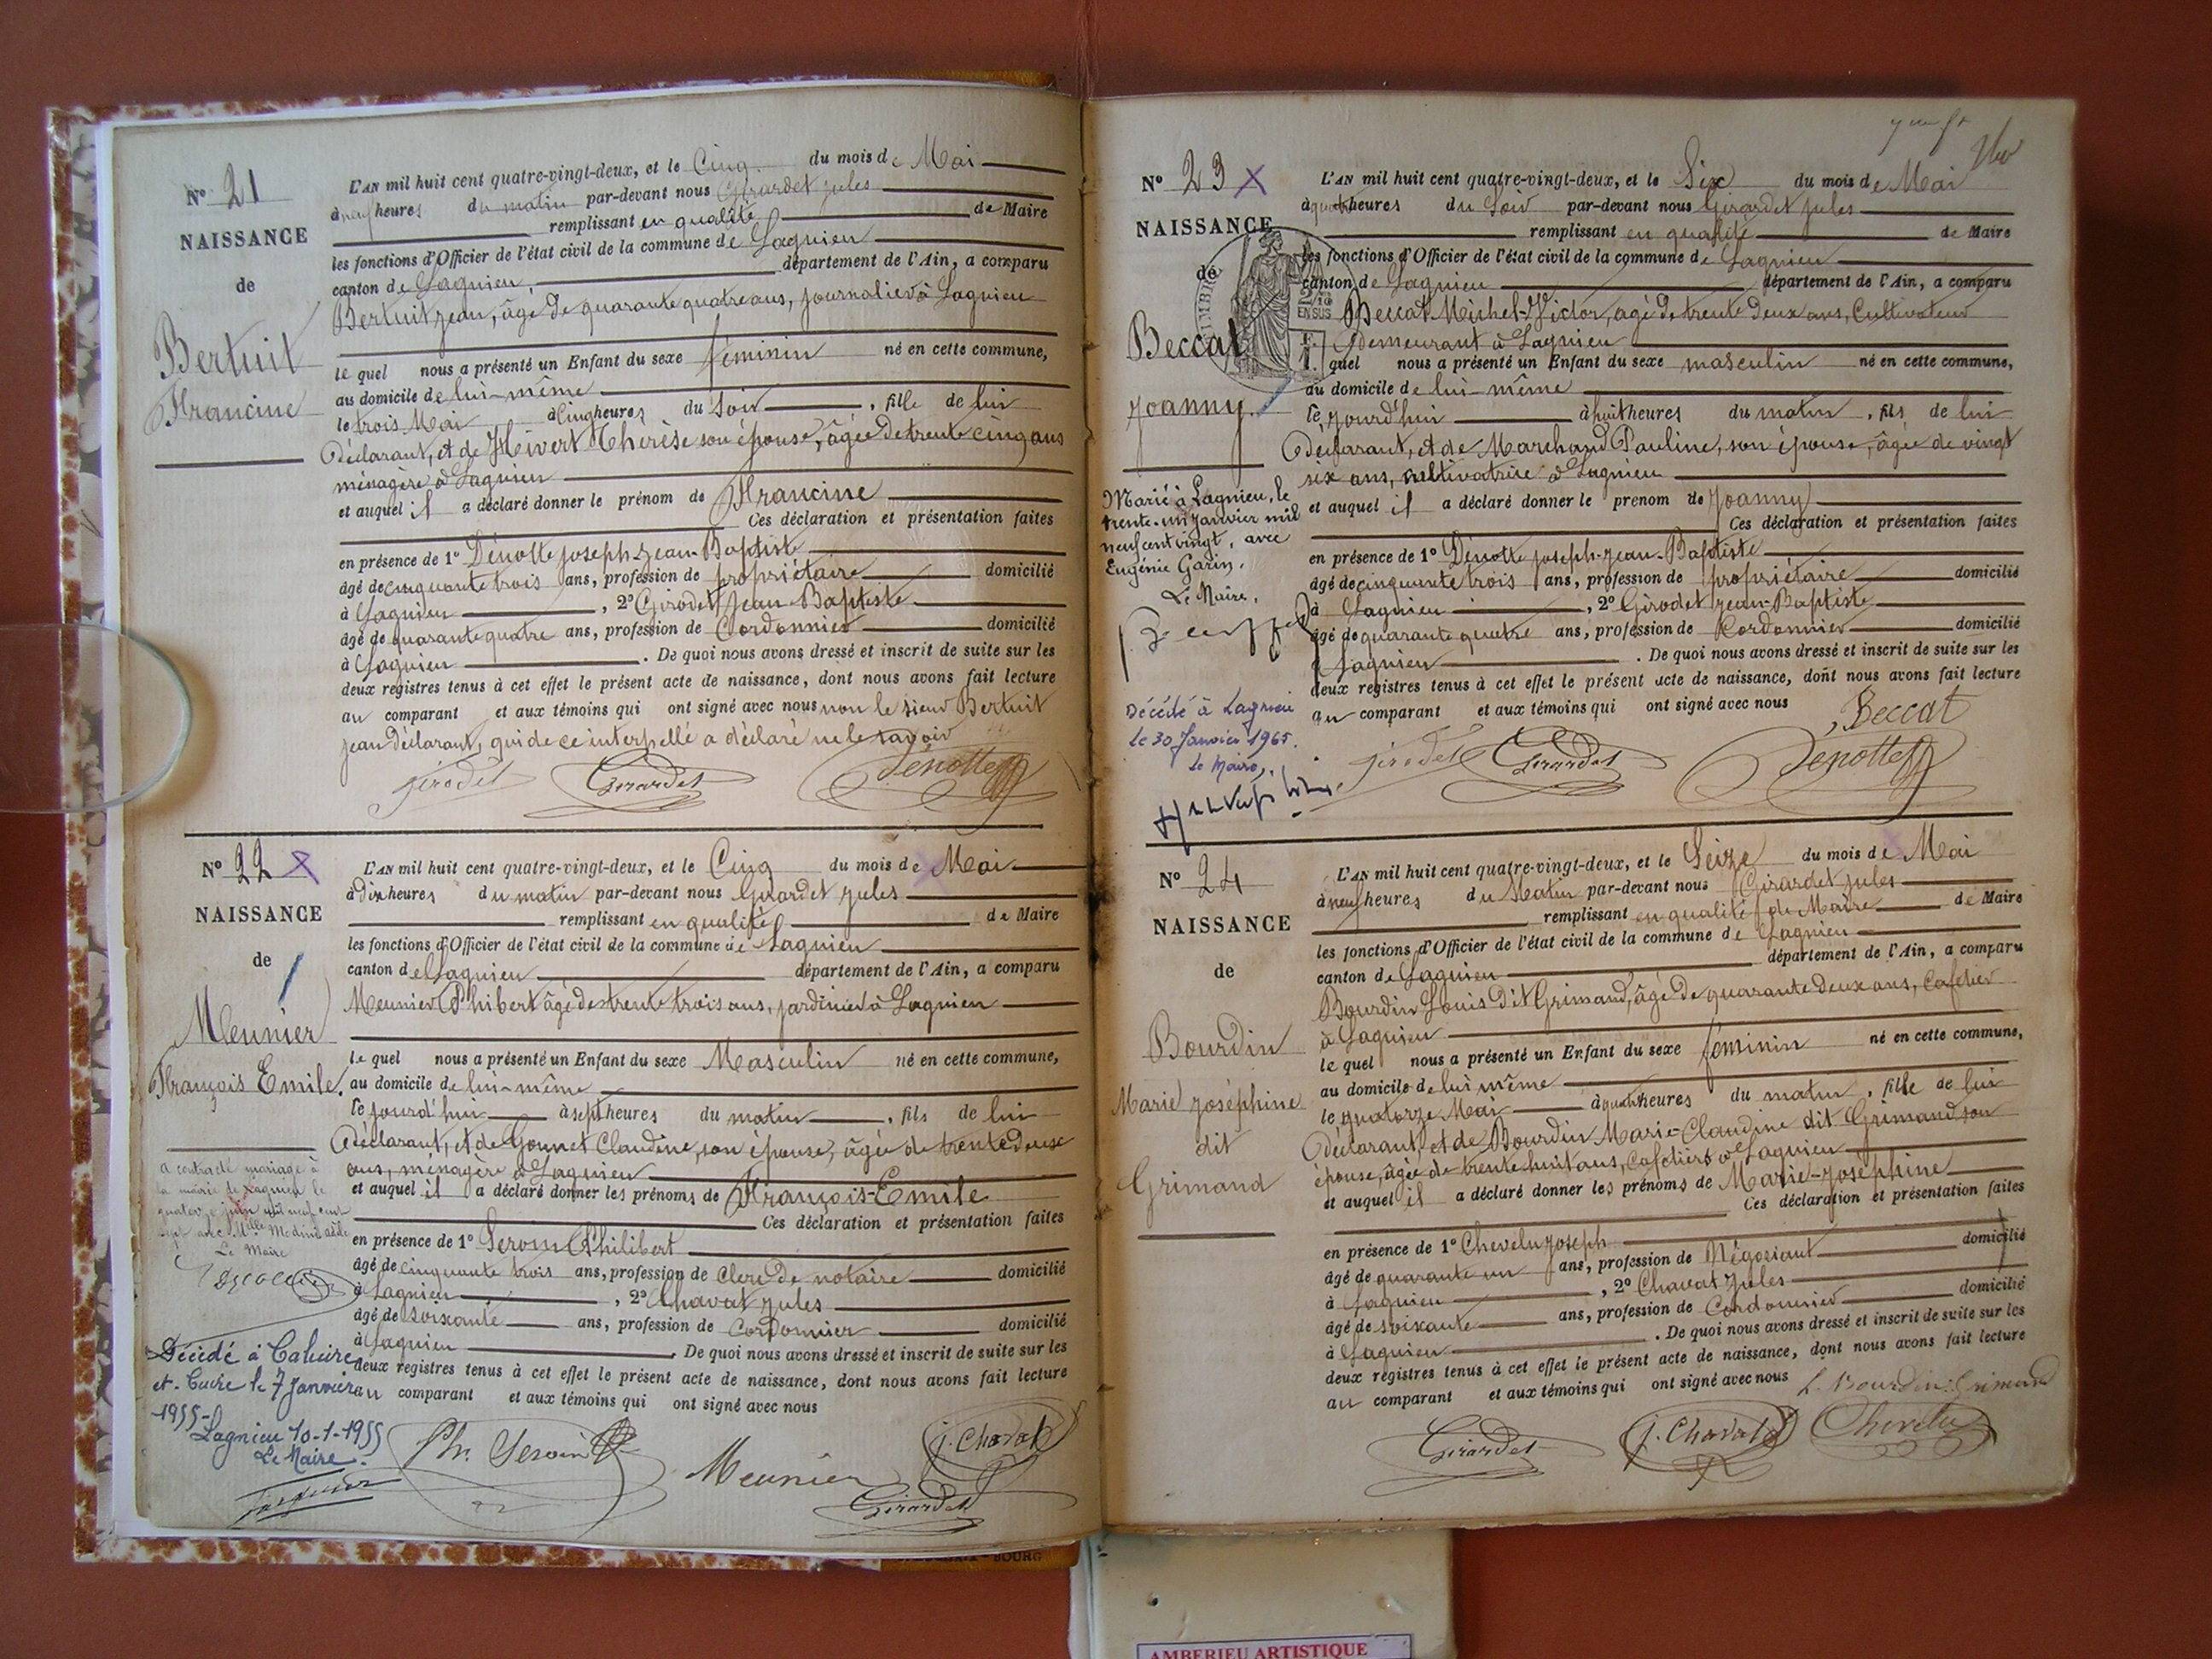 N° 21
NAISSANCE
de
Bertuit
Francine
L'AN mil huit cent quatre-vingt-deux, et le Cinq du mois de Mai
à neuf heures du matin par-devant nous Girardet Jules
remplissant en qualité de Maire
les fonctions d'Officier de l'état civil de la commune de Lagnieu
canton de Lagnieu département de l'Ain, a comparu
Bertuit Jean, âgé de quarante quatre ans, journalier à Lagnieu
le quel nous a présenté un Enfant du sexe féminin né en cette commune,
au domicile de lui-même
le trois Mai à Cinq heures du Soir, fille de lui
Déclarant, et de Hivert Thérèse son épouse, âgée de trente cinq ans
ménagère à Lagnieu
et auquel il a déclaré donner le prénom de Francine
Ces déclaration et présentation faites
en présence de 1° Dénotte Joseph-Jean-Baptiste
âgé de cinquante trois ans, profession de propriétaire domicilié
à Lagnieu, 2° Girodet Jean-Baptiste
âgé de quarante quatre ans, profession de Cordonnier domicilié
à Lagnieu. De quoi nous avons dressé et inscrit de suite sur les
deux registres tenus à cet effet le présent acte de naissance, dont nous avons fait lecture
au comparant et aux témoins qui ont signé avec nous non le sieur Bertuit
Jean Déclarant, qui de ce interpellé a déclaré ne le savoir
Girodet Girardet Denotte
N° 22 X
NAISSANCE
de
Meunier
François Emile.
A contracté mariage à
la mairie de Lagnieu le
quatorze juin mil neuf cent
sept avec Mlle
Le Maire
Décédé à Caluire
et-Cuire le 7 Janvier
1955-
Lagnieu 10-1-1955
Le Maire.
L'AN mil huit cent quatre-vingt-deux, et le Cinq du mois de Mai
à dix heures du matin par-devant nous Girardet Jules
remplissant en qualité de Maire
les fonctions d'Officier de l'état civil de la commune de Lagnieu
canton de Lagnieu département de l'Ain, a comparu
Meunier Phibert âgé de trente trois ans, jardinier à Lagnieu
le quel nous a présenté un Enfant du sexe Masculin né en cette commune,
au domicile de lui-même
le jourd'hui à sept heures du matin, fils de lui
Déclarant, et de Gonnet Claudine, son épouse, âgée de trente deux
ans, ménagère à Lagnieu
et auquel il a déclaré donner les prénoms de François-Emile
Ces déclaration et présentation faites
en présence de 1° Philibert
âgé de cinquante trois ans, profession de Clerc de notaire domicilié
à Lagnieu, 2° Chavat Jules
âgé de soixante ans, profession de Cordonnier domicilié
à Lagnieu. De quoi nous avons dressé et inscrit de suite sur les
deux registres tenus à cet effet le présent acte de naissance, dont nous avons fait lecture
au comparant et aux témoins qui ont signé avec nous
Ph. J. Chavat
Meunier
Girardet
N° 23 X
NAISSANCE
de
Beccat
Joanny.
Marié à Lagnieu, le
trente-un Janvier mil
neuf cent vingt, avec
Eugénie Garin.
Le Maire,
Décédé à Lagnieu
le 30 Janvier 1965.
Le Maire,
L'AN mil huit cent quatre-vingt-deux, et le Six du mois de Mai
à quatre heures du Soir par-devant nous Girardet Jules
remplissant en qualité de Maire
les fonctions d'Officier de l'état civil de la commune de Lagnieu
canton de Lagnieu département de l'Ain, a comparu
Beccat Michel-Victor, âgé de trente deux ans, Cultivateur
demeurant à Lagnieu
l quel nous a présenté un Enfant du sexe masculin né en cette commune,
au domicile de lui-même
le jourd'hui à huit heures du matin, fils de lui
Déclarant, et de Marchand Pauline, son épouse, âgée de vingt
six ans, cultivatrice à Lagnieu
et auquel il a déclaré donner le prenom de Joanny
Ces déclaration et présentation faites
en présence de 1° Dénotte Joseph-Jean-Baptiste
âgé de cinquante trois ans, profession de propriétaire domicilié
à Lagnieu, 2° Girodet Jean-Baptiste
âgé de quarante quatre ans, profession de Cordonnier domicilié
à Lagnieu. De quoi nous avons dressé et inscrit de suite sur les
deux registres tenus à cet effet le présent acte de naissance, dont nous avons fait lecture
au comparant et aux témoins qui ont signé avec nous Beccat
Girodet Girardet Denotte
N° 24
NAISSANCE
de
Bourdin
Marie Joséphine
dit
Grimand
L'AN mil huit cent quatre-vingt-deux, et le Seize du mois de Mai
à neuf heures du Matin par-devant nous Girardet Jules
remplissant en qualité de Maire de Maire
les fonctions d'Officier de l'état civil de la commune de Lagnieu
canton de Lagnieu département de l'Ain, a comparu
Bourdin Louis Dit Grimand, âgé de quarante deux ans, Cafetier
à Lagnieu
le quel nous a présenté un Enfant du sexe féminin né en cette commune,
au domicile de lui même
le quatorze Mai à quatre heures du matin, fille de lui
Déclarant, et de Bourdin Marie-Claudine dit Grimand son
épouse, âgée de trente huit ans, Cafetière à Lagnieu
et auquel il a déclaré donner les prénoms de Marie-Joséphine
Ces déclaration et présentation faites
en présence de 1° Chevelu Joseph
âgé de quarante un ans, profession de Négociant domicilié
à Lagnieu, 2° Chavat Jules
âgé de soixante ans, profession de Cordonnier domicilié
à Lagnieu. De quoi nous avons dressé et inscrit de suite sur les
deux registres tenus à cet effet le présent acte de naissance, dont nous avons fait lecture
au comparant et aux témoins qui ont signé avec nous L. Bourdin-Grimand
Girardet J. Chavat Chevelu
BOURG
AMBERIEU ARTISTIQUE